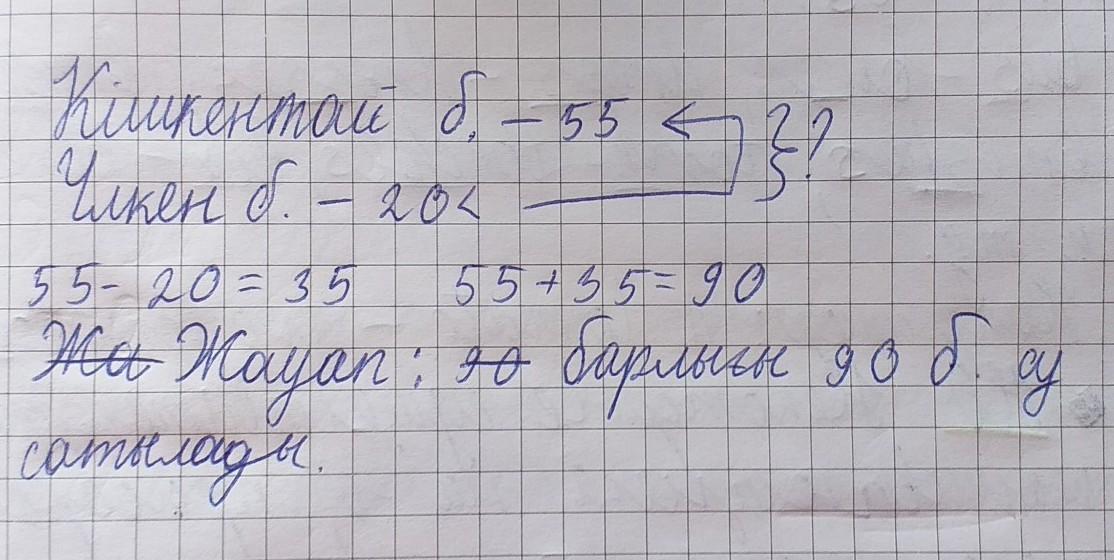 Кішкентай б. – 55 ?
Үлкен б. – 20<
55 - 20 = 35 55 + 35 = 90
Жа Жауап: 90 барлығы 90 б. су
сатылады.